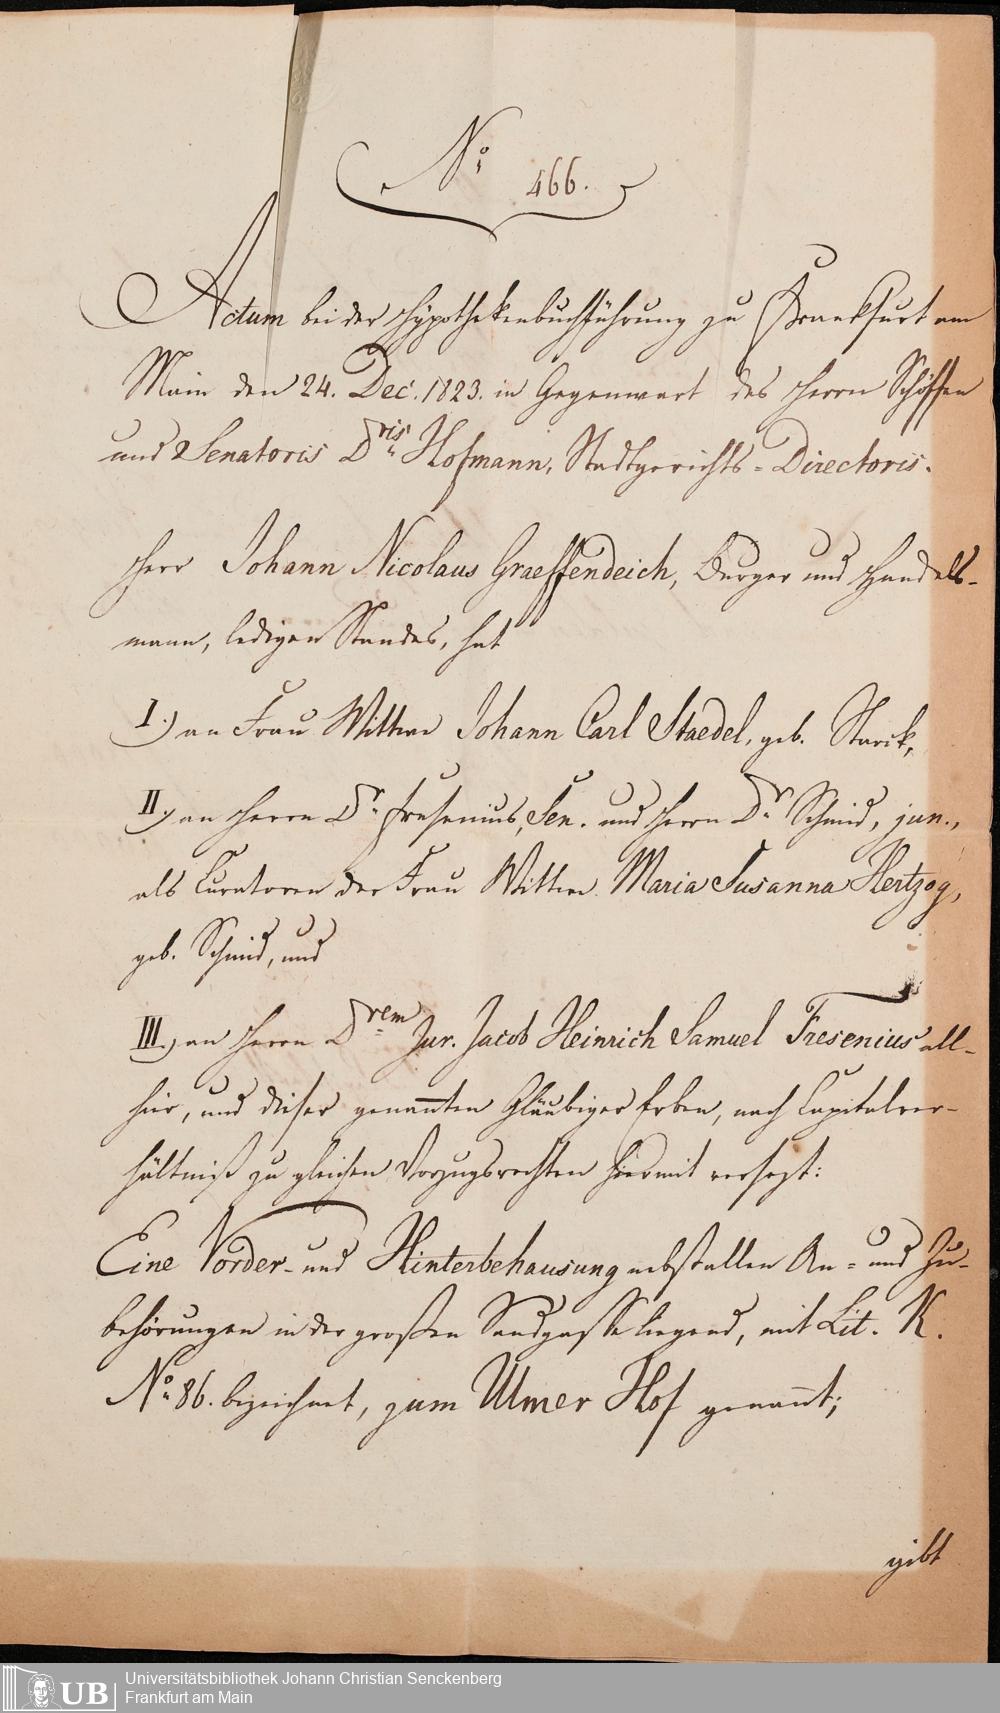 No 466.
Actum bei der Hypothekenbuchführung zu Frankfurt am
Main den 24. Dec. 1823. in Gegenwart des Herrn Schöffen
und Senatoris Dris Hofmann, Stadtgerichts-Directoris.
Herr Johann Nicolaus Graeffendeich, Burger und Handels-
mann, ledigen Standes, hat
I.) an Frau Wittwe Johann Carl Staedel, geb. Starck,
II.) an Herrn Dr. Fresenius, Sen. und Herrn Dr. Schmid, jun.,
als Curatoren der Frau Wittwe Maria Susanna Hertzog,
geb. Schmid, und
III.) an Herrn Drem Jur. Jacob Heinrich Samuel Fresenius all-
hier, und dieser genannten Gläubiger Erben, nach Capitalver-
hältniß zu gleichen Vorzugsrechten hiermit versezt:
Eine Vorder- und Hinterbehausung nebst allen An- und Zu-
behörungen in der großen Sandgasse liegend, mit Lit. K.
No 86. bezeichnet, zum Ulmer Hof genannt;
gibt
UB
Universitätsbibliothek Johann Christian Senckenberg
Frankfurt am Main